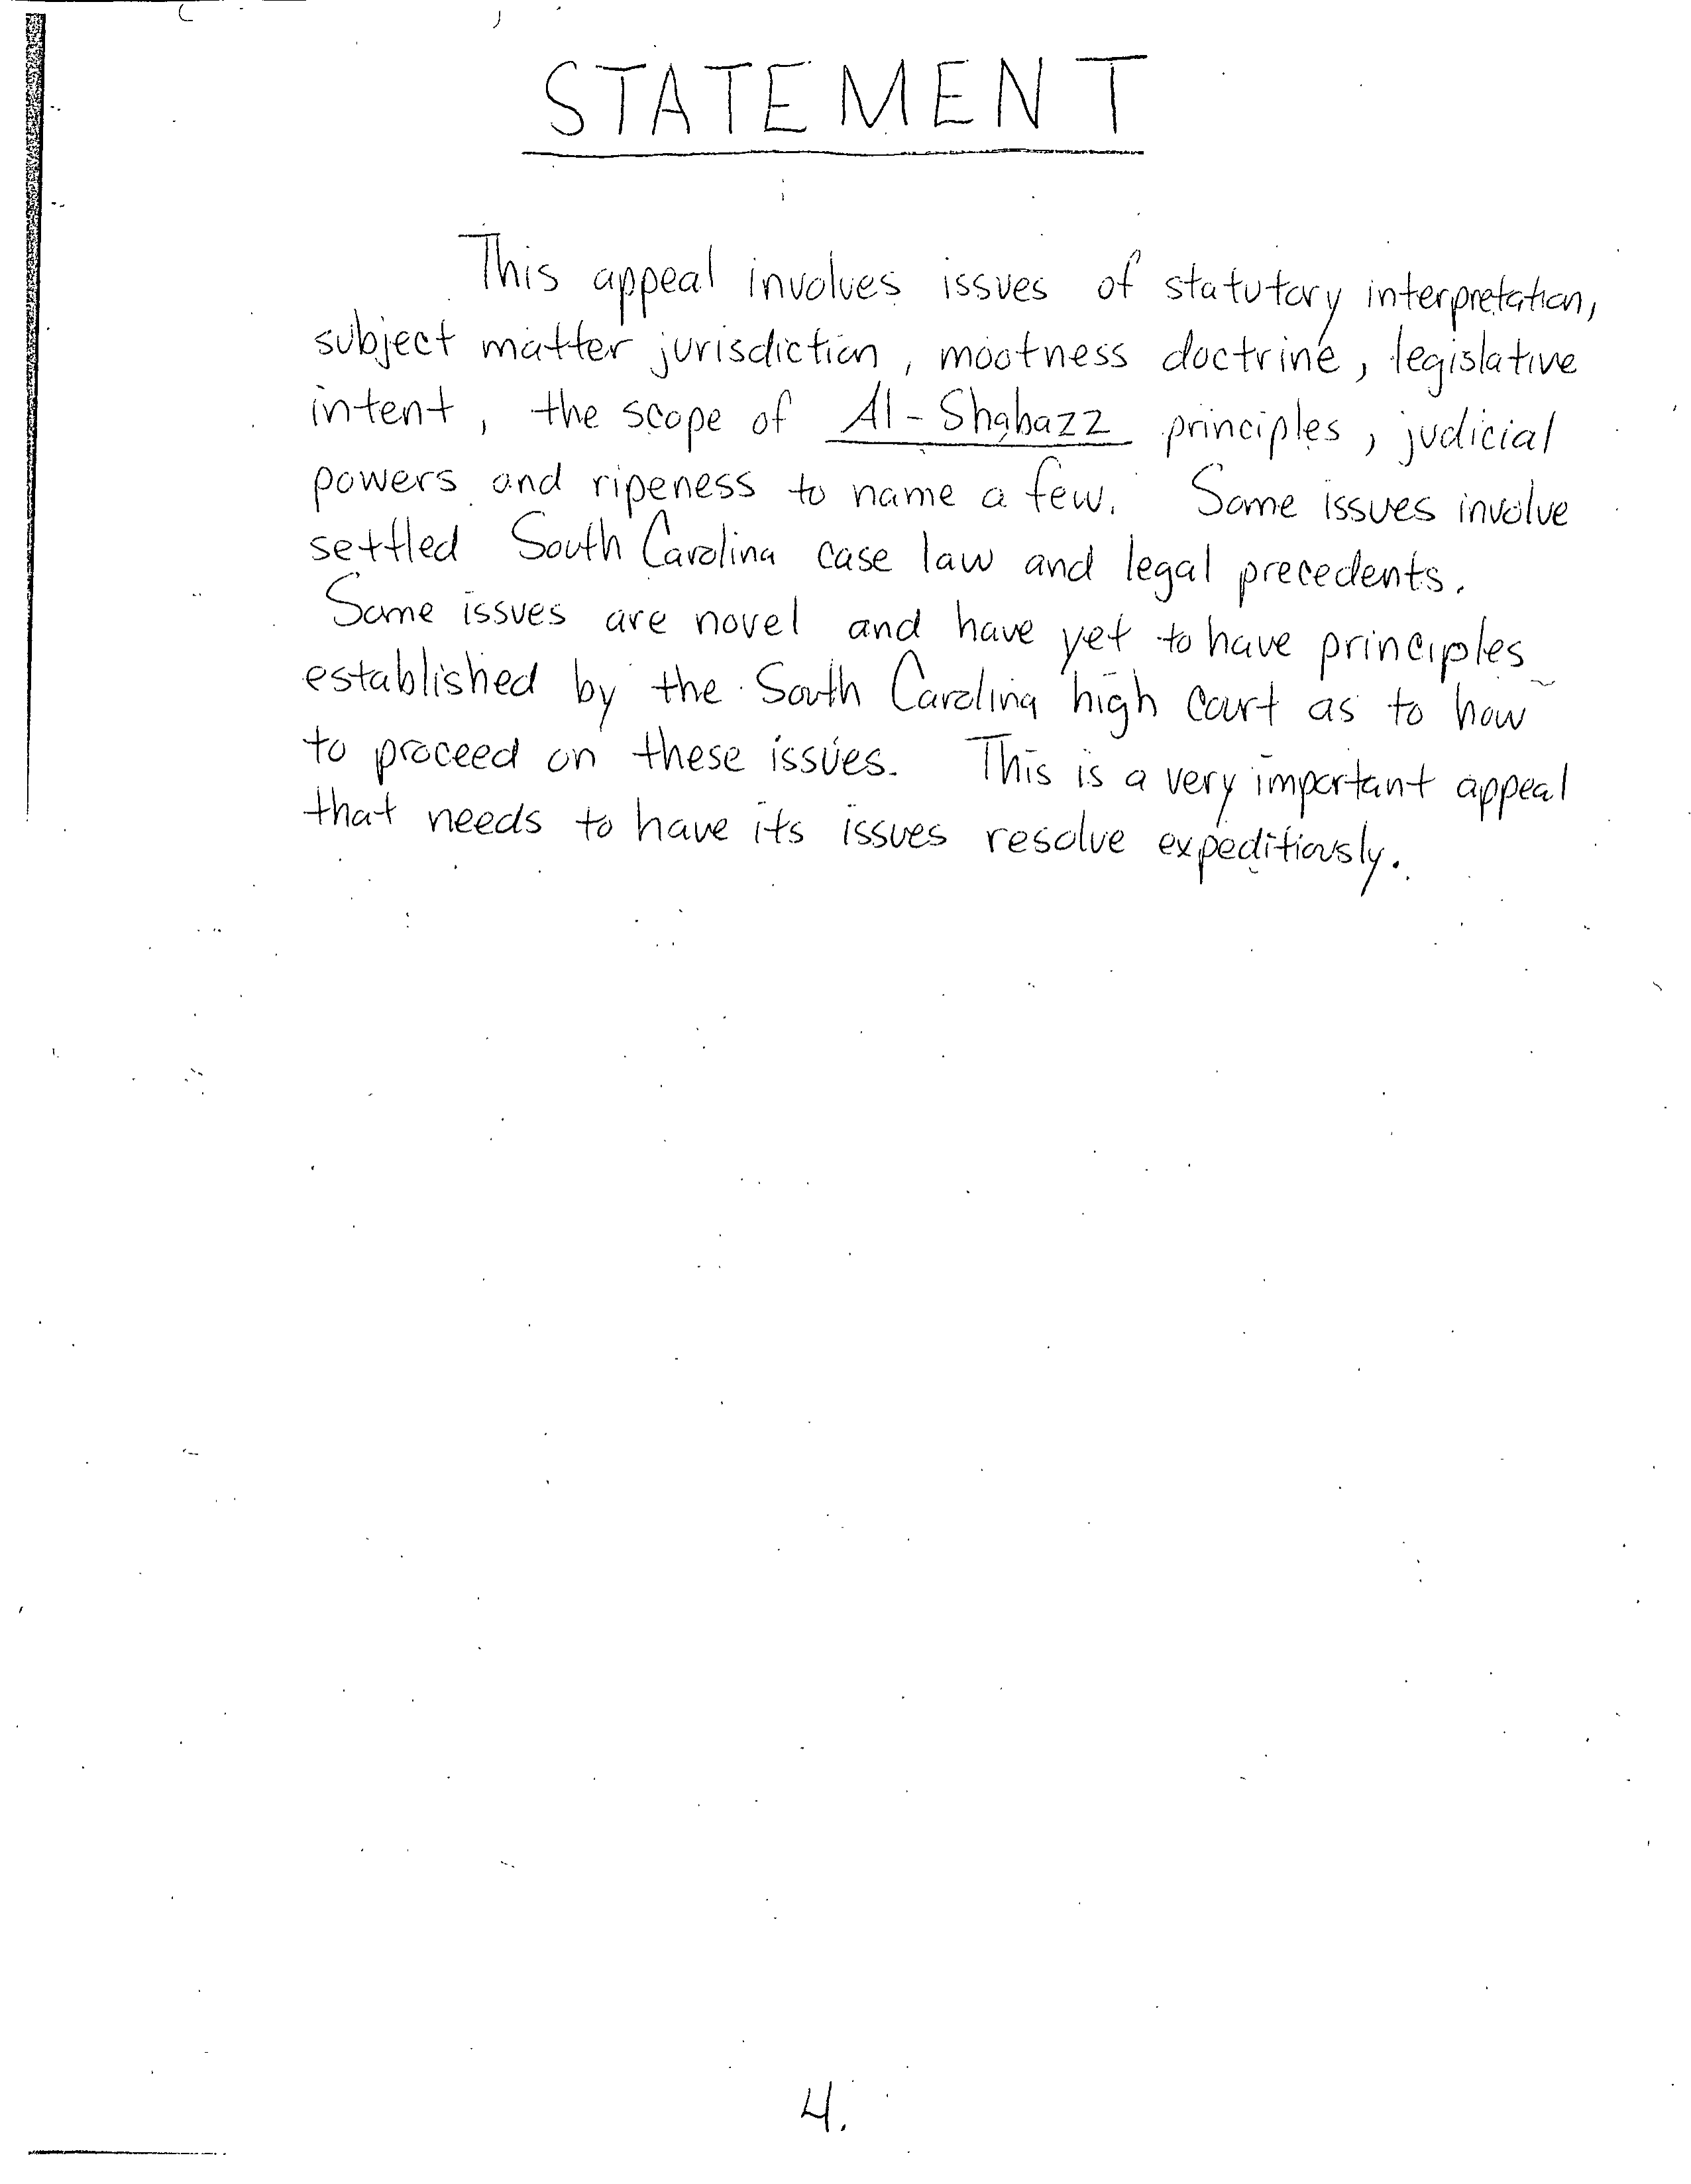 STATEMENT
This appeal involves issues of statutory interpretation,
subject matter jurisdiction, mootness doctrine, legislative
intent, the scope of Al-Shabazz principles, judicial
powers and ripeness to name a few. Some issues involve
settled South Carolina case law and legal precedents.
Some issues are novel and have yet to have principles
established by the South Carolina high court as to how
to proceed on these issues. This is a very important appeal
that needs to have its issues resolve expeditiously.
4.